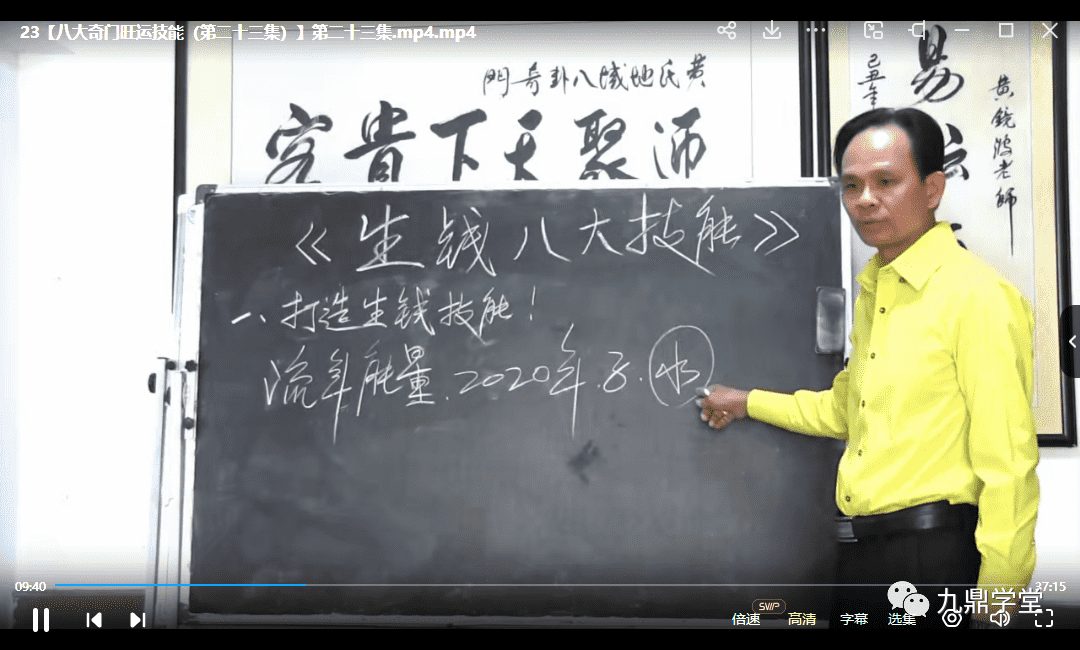 23【八大奇门旺运技能（第二十三集）】第二十三集.mp4.mp4
門奇卦八域地氏黄
客貴下天聚洒
易
己丑年
黄鏡波老師
《生钱八大技能》
一、打造生钱技能！
流年能量.2020年.子.水
09:40
37:15
SVIP
倍速
高清
字幕
选集
九鼎学堂